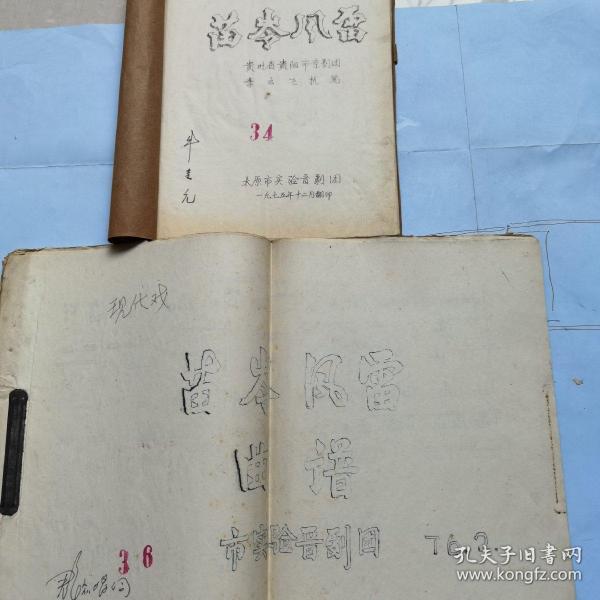 苗岑风雷
贵州省贵阳市京剧团
李云飞执笔
34
牛圭元
太原市实验晋剧团
一九七五年十二月翻印
现代戏
苗岑风雷
曲谱
市实验晋剧团 76.3.
36
孔夫子旧书网
www.kongfz.com